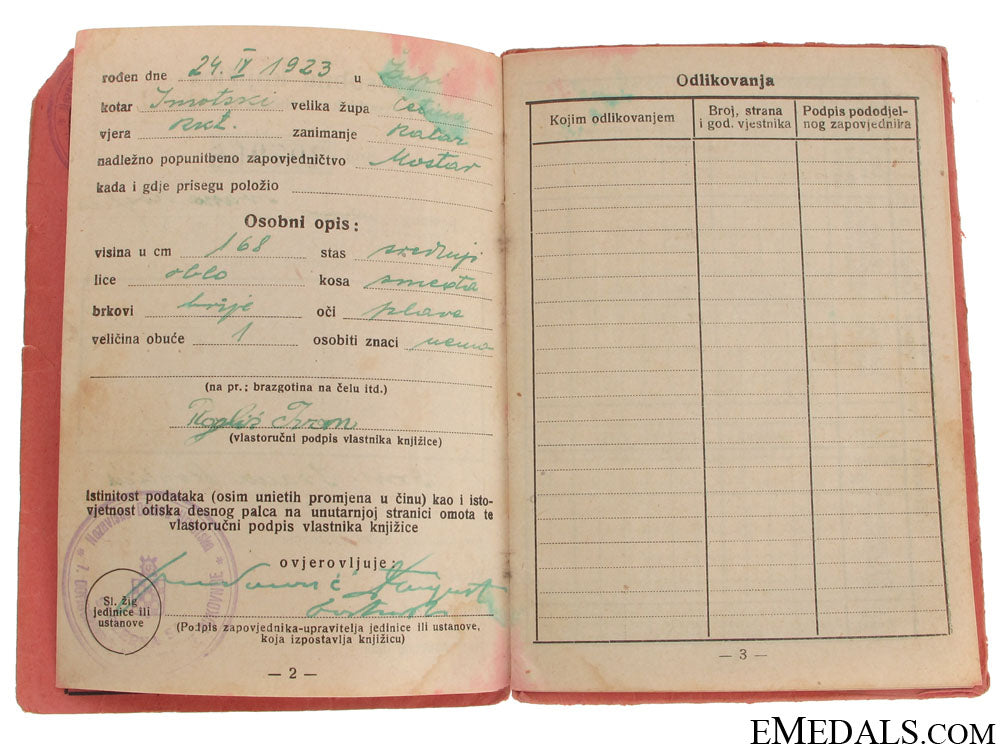 rođen dne 24. IV 1923 u
kotar Imotski velika župa
vjera Rkt. zanimanje Ratar
nadležno popunitbeno zapovjedničtvo Mostar
kada i gdje prisegu položio
Osobni opis:
visina u cm 168 stas srednji
lice oblo kosa smeđa
brkovi brije oči plave
veličina obuće 1 osobiti znaci nema
(na pr.; brazgotina na čelu itd.)
Ivan
(vlastoručni podpis vlastnika knjižice)
Istinitost podataka (osim unietih promjena u činu) kao i isto-
vjetnost otiska desnog palca na unutarnjoj stranici omota te
vlastoručni podpis vlastnika knjižice
ovjerovljuje:
Sl. žig
jedinice ili
ustanove
(Podpis zapovjednika-upravitelja jedinice ili ustanove,
koja izpostavlja knjižicu)
— 2 —
Odlikovanja
Kojim odlikovanjem
Broj, strana
i god. vjestnika
Podpis pododjel-
nog zapovjednika
— 3 —
EMEDALS.COM